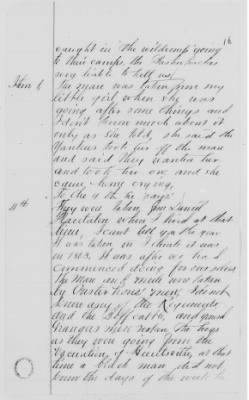 16
caught in the wilderness going
to their camps the Bushwhackers
very liable to kill us
Item 8 The mare was taken from my
little girl when she was
going after some things and
I don't know much about it
only as she told, she said the
Yankees took her off the mare
and said they wanted her
and took her on and she
came home crying,
To the 9 he says:
They were taken from Daniel
when I lived at that
time, I cant tell ya the year
it was taken in I think it was
in 1863. It was after we had
commenced doing for ourselves
The Mare an & mule were taken
by men, I do not
know any of the Regiments
and the Beef cattle, and
Grangers men taken the hogs
as they were going from the
of Huntsville, at that
time a black man did not
know the days of the week to